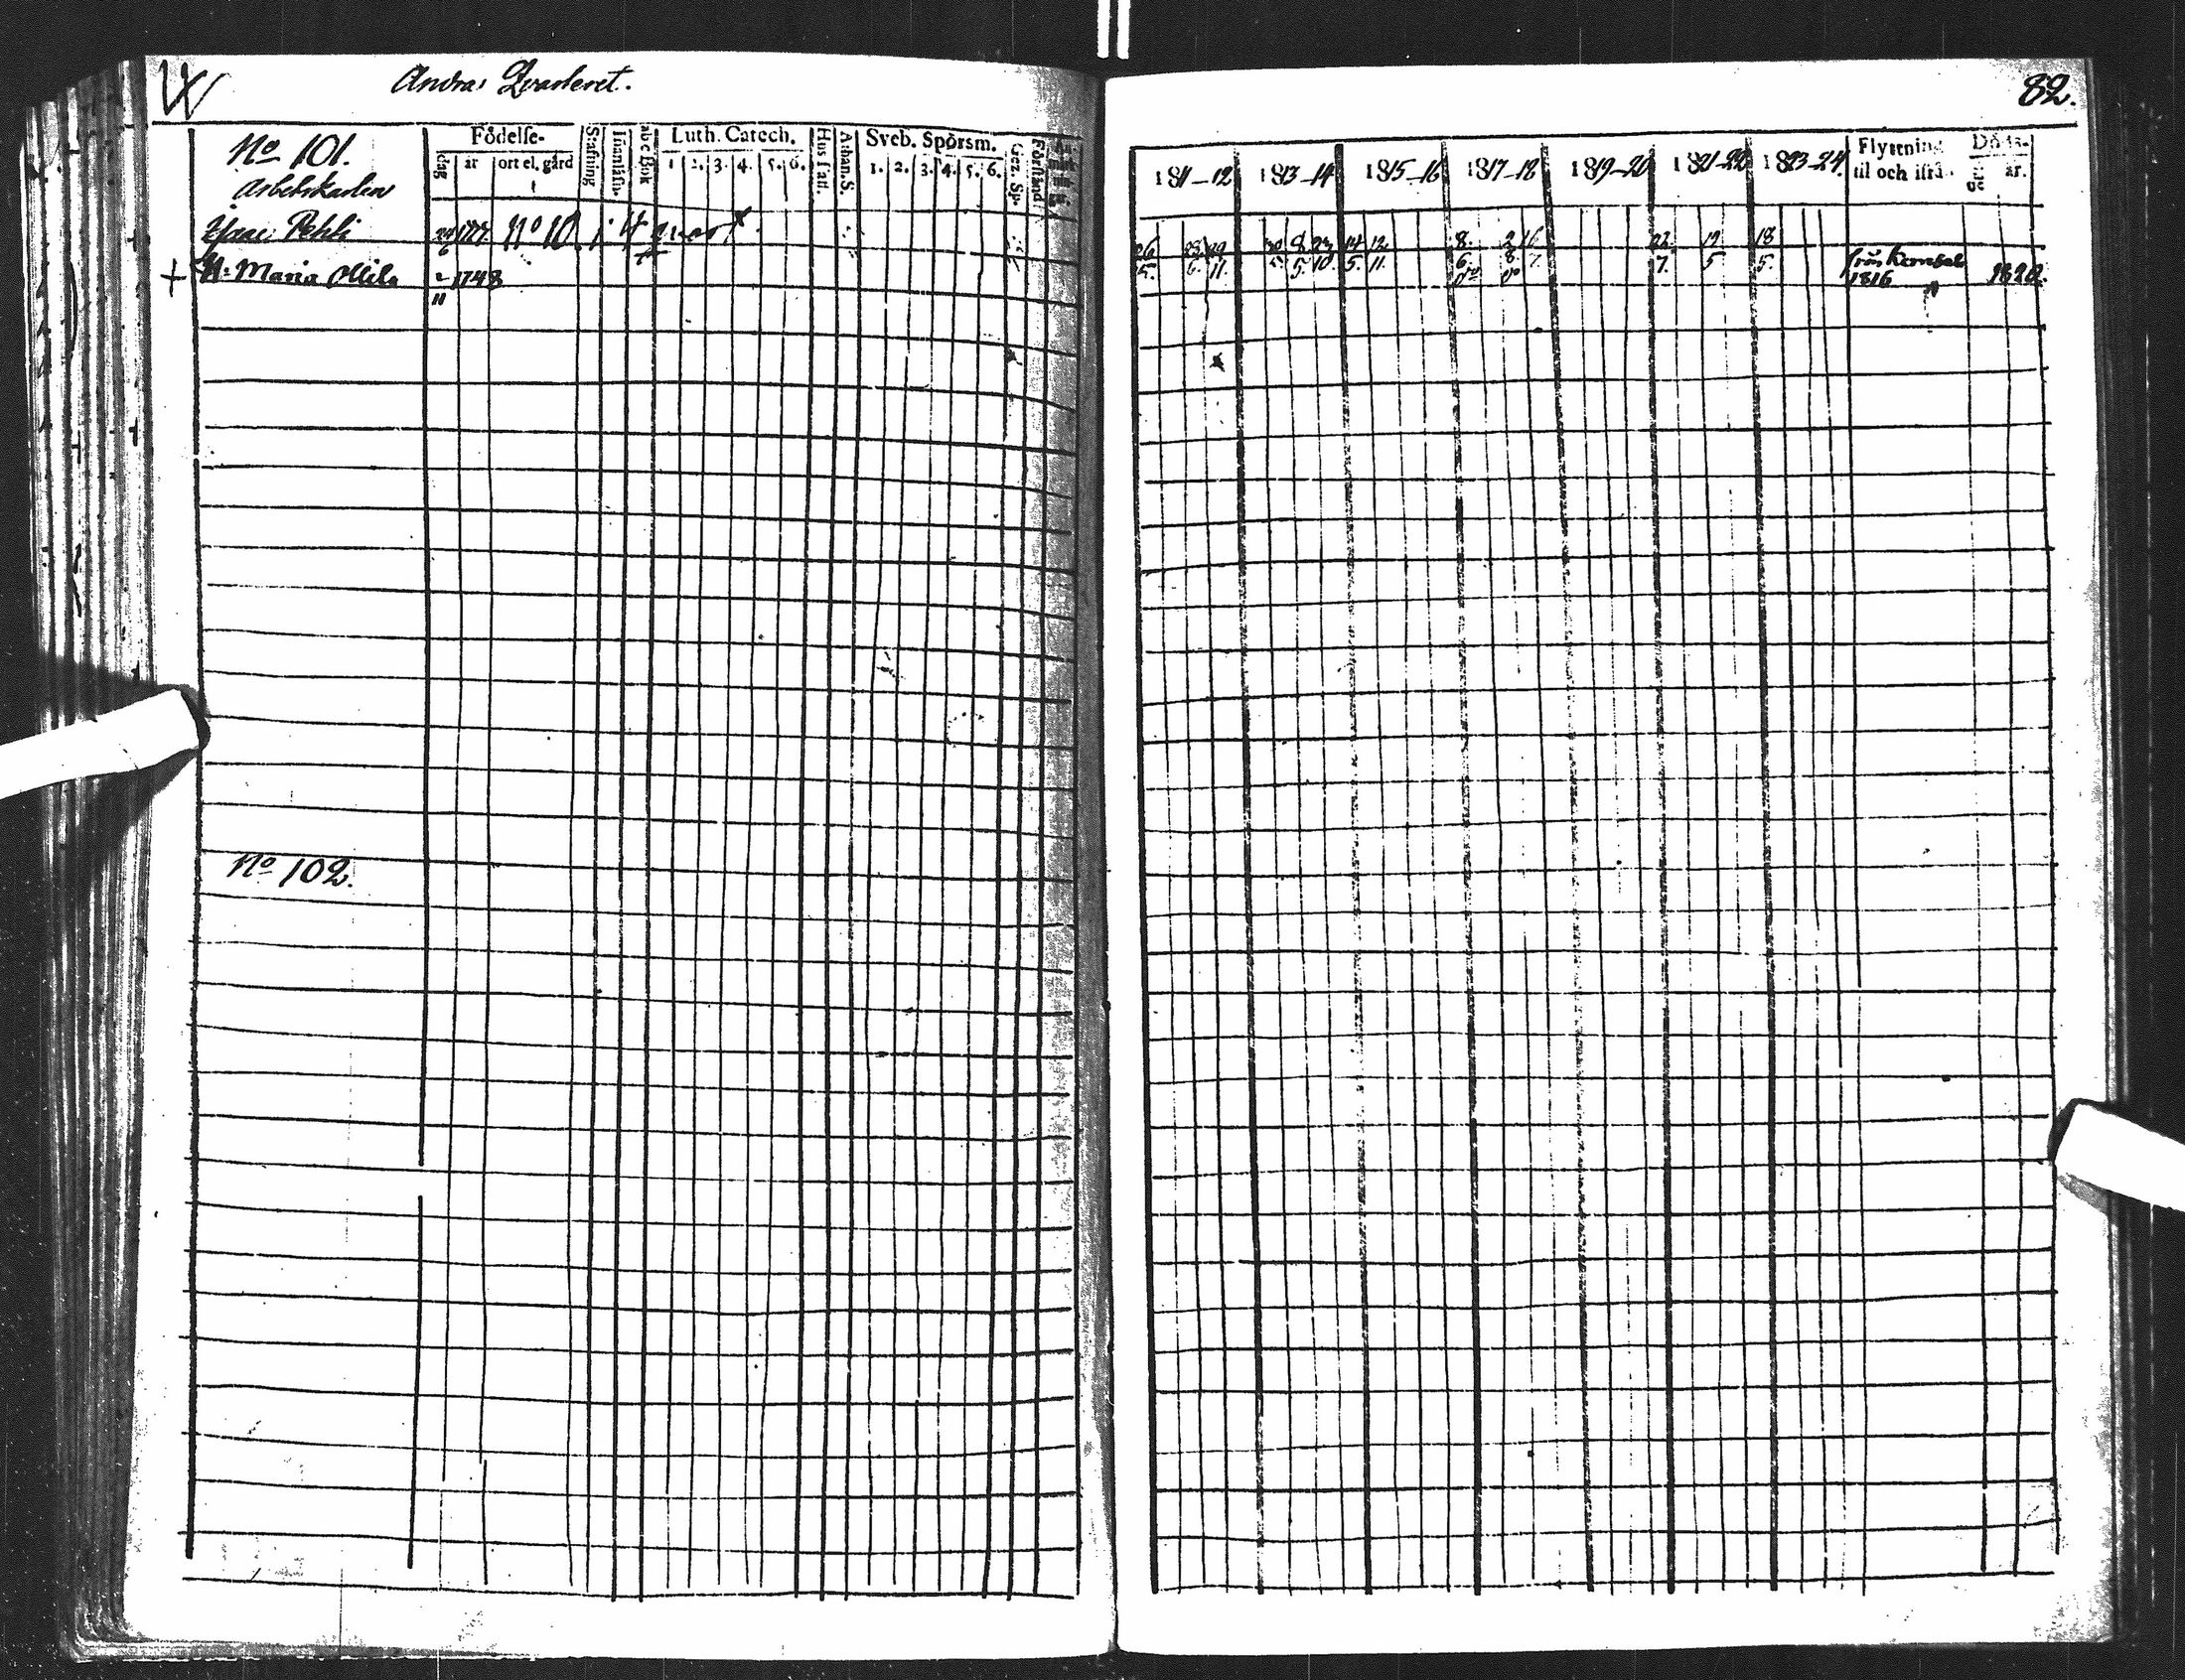 Andra Qvarteret.
82.
Födelse-
dag
år
ort el. gård
Stafning
abc Bok
Luth. Catech.
1 2. 3. 4. 5. 6.
Athan. S.
Sveb. Spörsm.
1. 2. 3. 4. 5. 6.
Förstånd
1811-12
1813-14
1815-16
1817-18
1819-20
1821-22
1823-24.
Flyttning
til och ifrå
Döds-
år.
No 101.
Arbetskarlen
Pehli
24/6
No 10 i 4 quart
H: Maria Ollila
2/11 1748
26/5.
29/11.
8/5.
23/10.
14/5.
12/11.
8/6.
2/8
16/7.
22/7.
19/5
18/5.
från
1816
1820.
No 102.